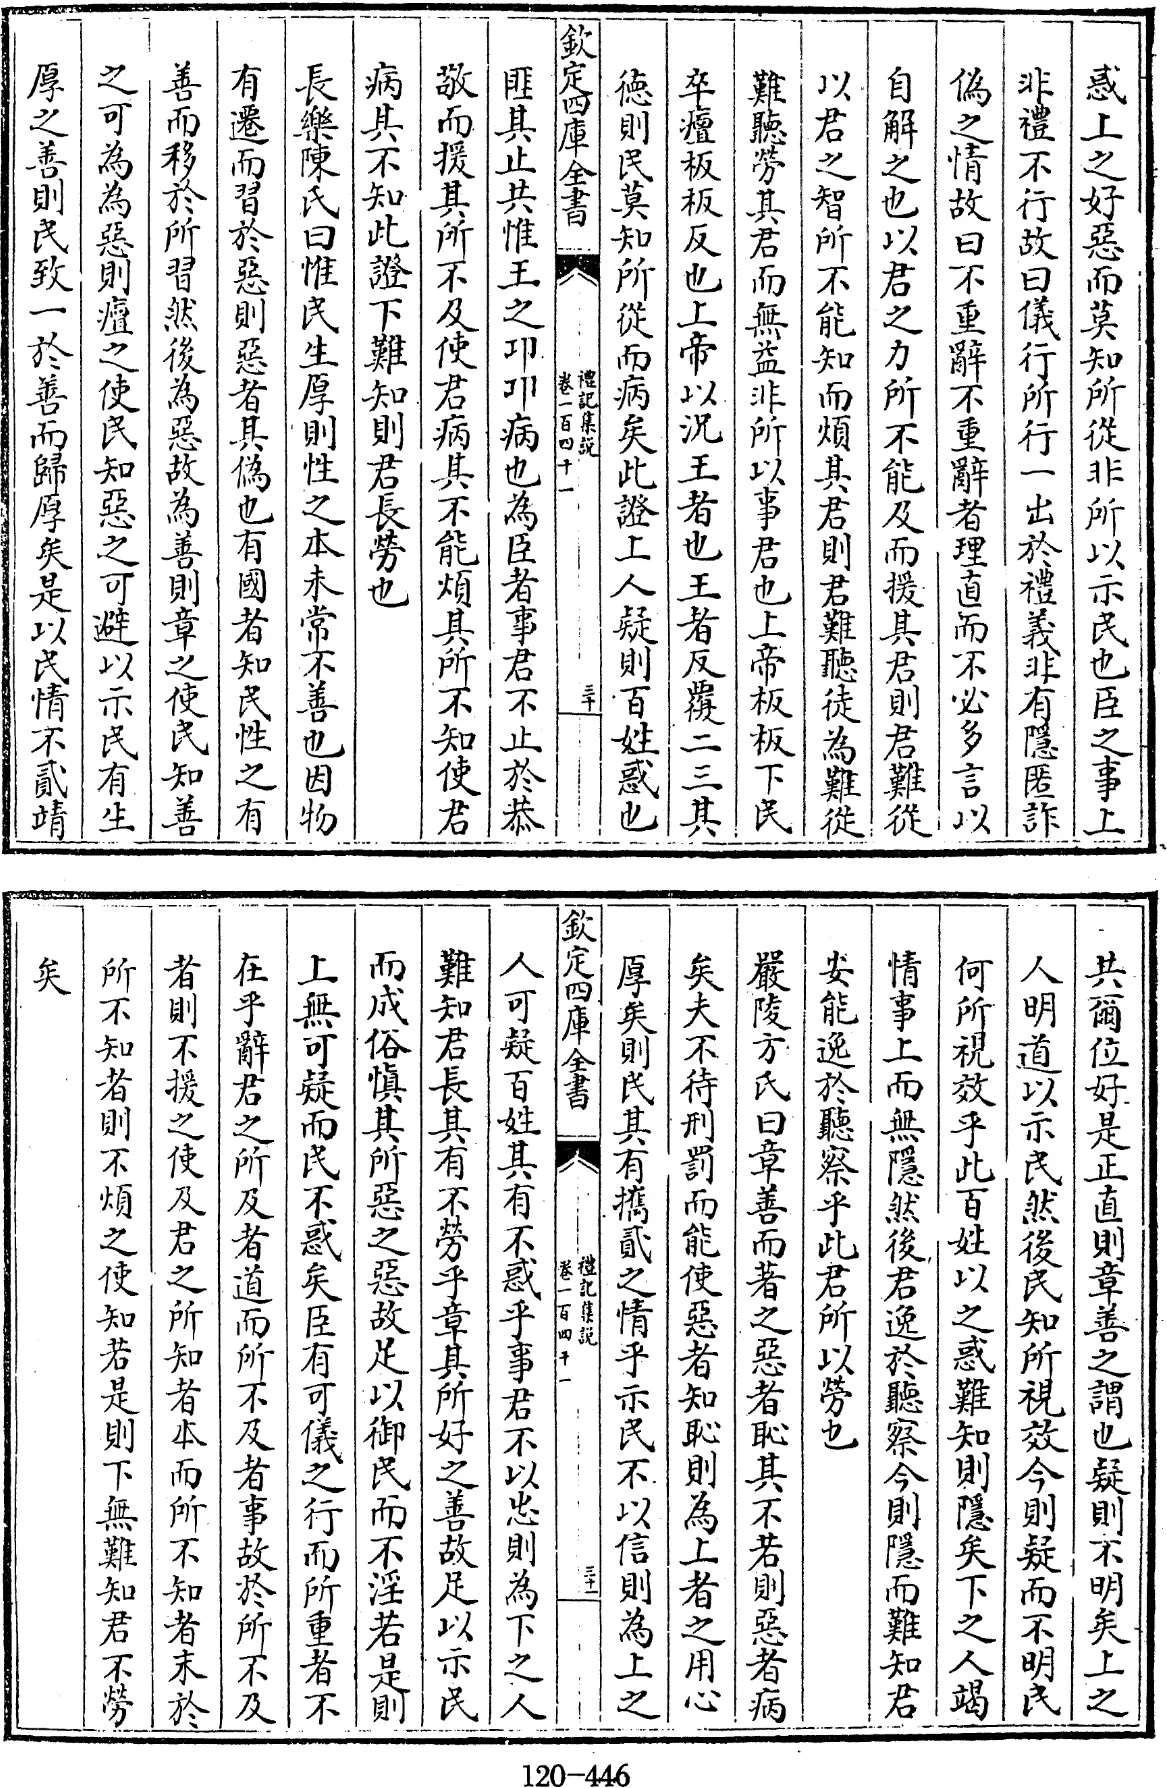 惑上之好惡而莫知所從非所以示民也臣之事上
非禮不行故曰儀行所行一出於禮義非有隱匿詐
偽之情故曰不重辭不重辭者理直而不必多言以
自解之也以君之力所不能及而援其君則君難從
以君之智所不能知而煩其君則君難聽徒為難從
難聽勞其君而無益非所以事君也上帝板板下民
卒癉板板反也上帝以況王者也王者反覆二三其
徳則民莫知所從而病矣此證上人疑則百姓惑也
欽定四庫全書 禮記集說 卷一百四十一 三十
匪其止共惟王之卭卭病也為臣者事君不止於恭
敬而援其所不及使君病其不能煩其所不知使君
病其不知此證下難知則君長勞也
長樂陳氏曰惟民生厚則性之本未常不善也因物
有遷而習於惡則惡者其偽也有國者知民性之有
善而移於所習然後為惡故為善則章之使民知善
之可為為惡則癉之使民知惡之可避以示民有生
厚之善則民致一於善而歸厚矣是以民情不貳靖
共爾位好是正直則章善之謂也疑則不明矣上之
人明道以示民然後民知所視效今則疑而不明民
何所視效乎此百姓以之惑難知則隱矣下之人竭
情事上而無隱然後君逸於聽察今則隱而難知君
安能逸於聽察乎此君所以勞也
嚴陵方氏曰章善而著之惡者恥其不若則惡者病
矣夫不待刑罰而能使惡者知恥則為上者之用心
厚矣則民其有攜貳之情乎示民不以信則為上之
欽定四庫全書 禮記集說 卷一百四十一 三十一
人可疑百姓其有不惑乎事君不以忠則為下之人
難知君長其有不勞乎章其所好之善故足以示民
而成俗慎其所惡之惡故足以御民而不淫若是則
上無可疑而民不惑矣臣有可儀之行而所重者不
在乎辭君之所及者道而所不及者事故於所不及
者則不援之使及君之所知者本而所不知者末於
所不知者則不煩之使知若是則下無難知君不勞
矣
120-446